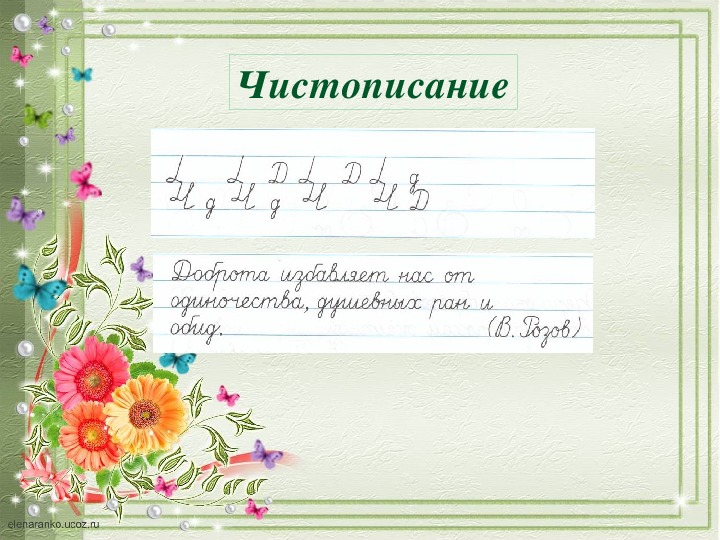 Чистописание
Д Д д
д д Д
Доброта избавляет нас от
одиночества, душевных ран и
обид. (В. Розов)
elenaranko.ucoz.ru